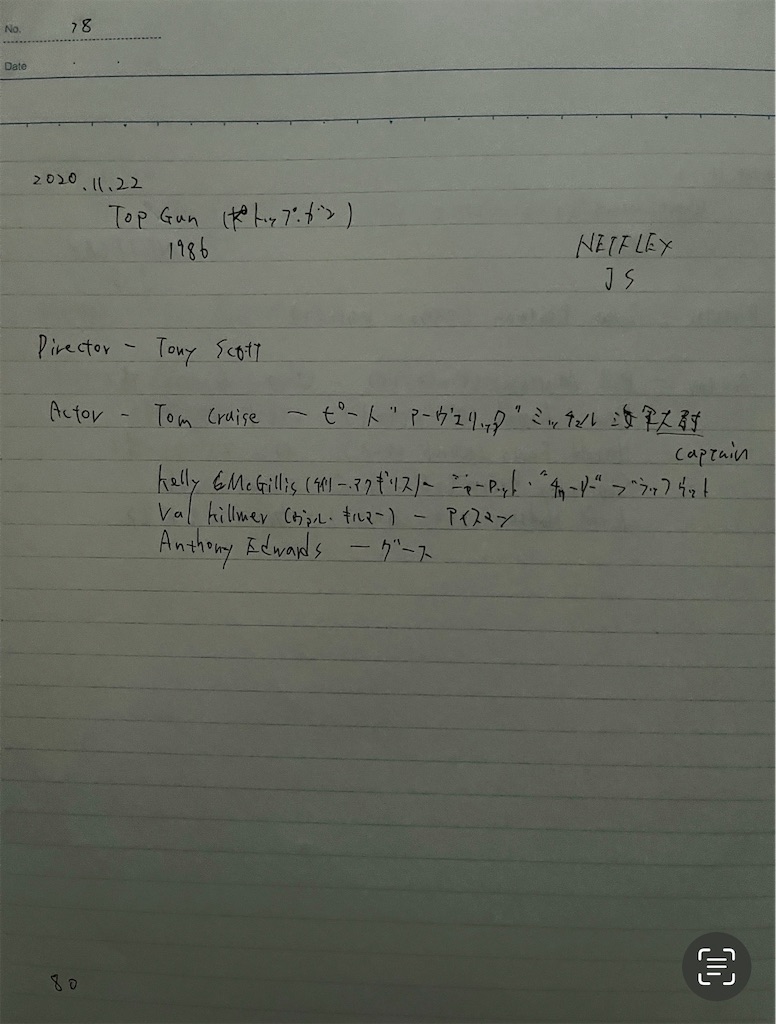 No. 78
Date
2020.11.22
Top Gun (トップ・ガン)
1986
NETFLEX
JS
Director - Tony Scott
Actor - Tom Cruise ー ピート"マーヴェリック"ミッチェル 海軍大尉
captain
Kelly McGillis (ケリー・マクギリス)ー シャーロット・"チャーリー"ブラックウッド
Val killmer (ヴァル・キルマー) - アイスマン
Anthony Edwards ー グース
80